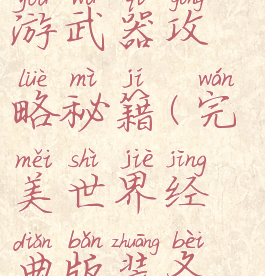 yóu wǔ qì gōng
游武器攻
lüè mì jí wán
略秘籍(完
měi shì jiè jīng
美世界经
diǎn bǎn zhuāng bèi
典版装备